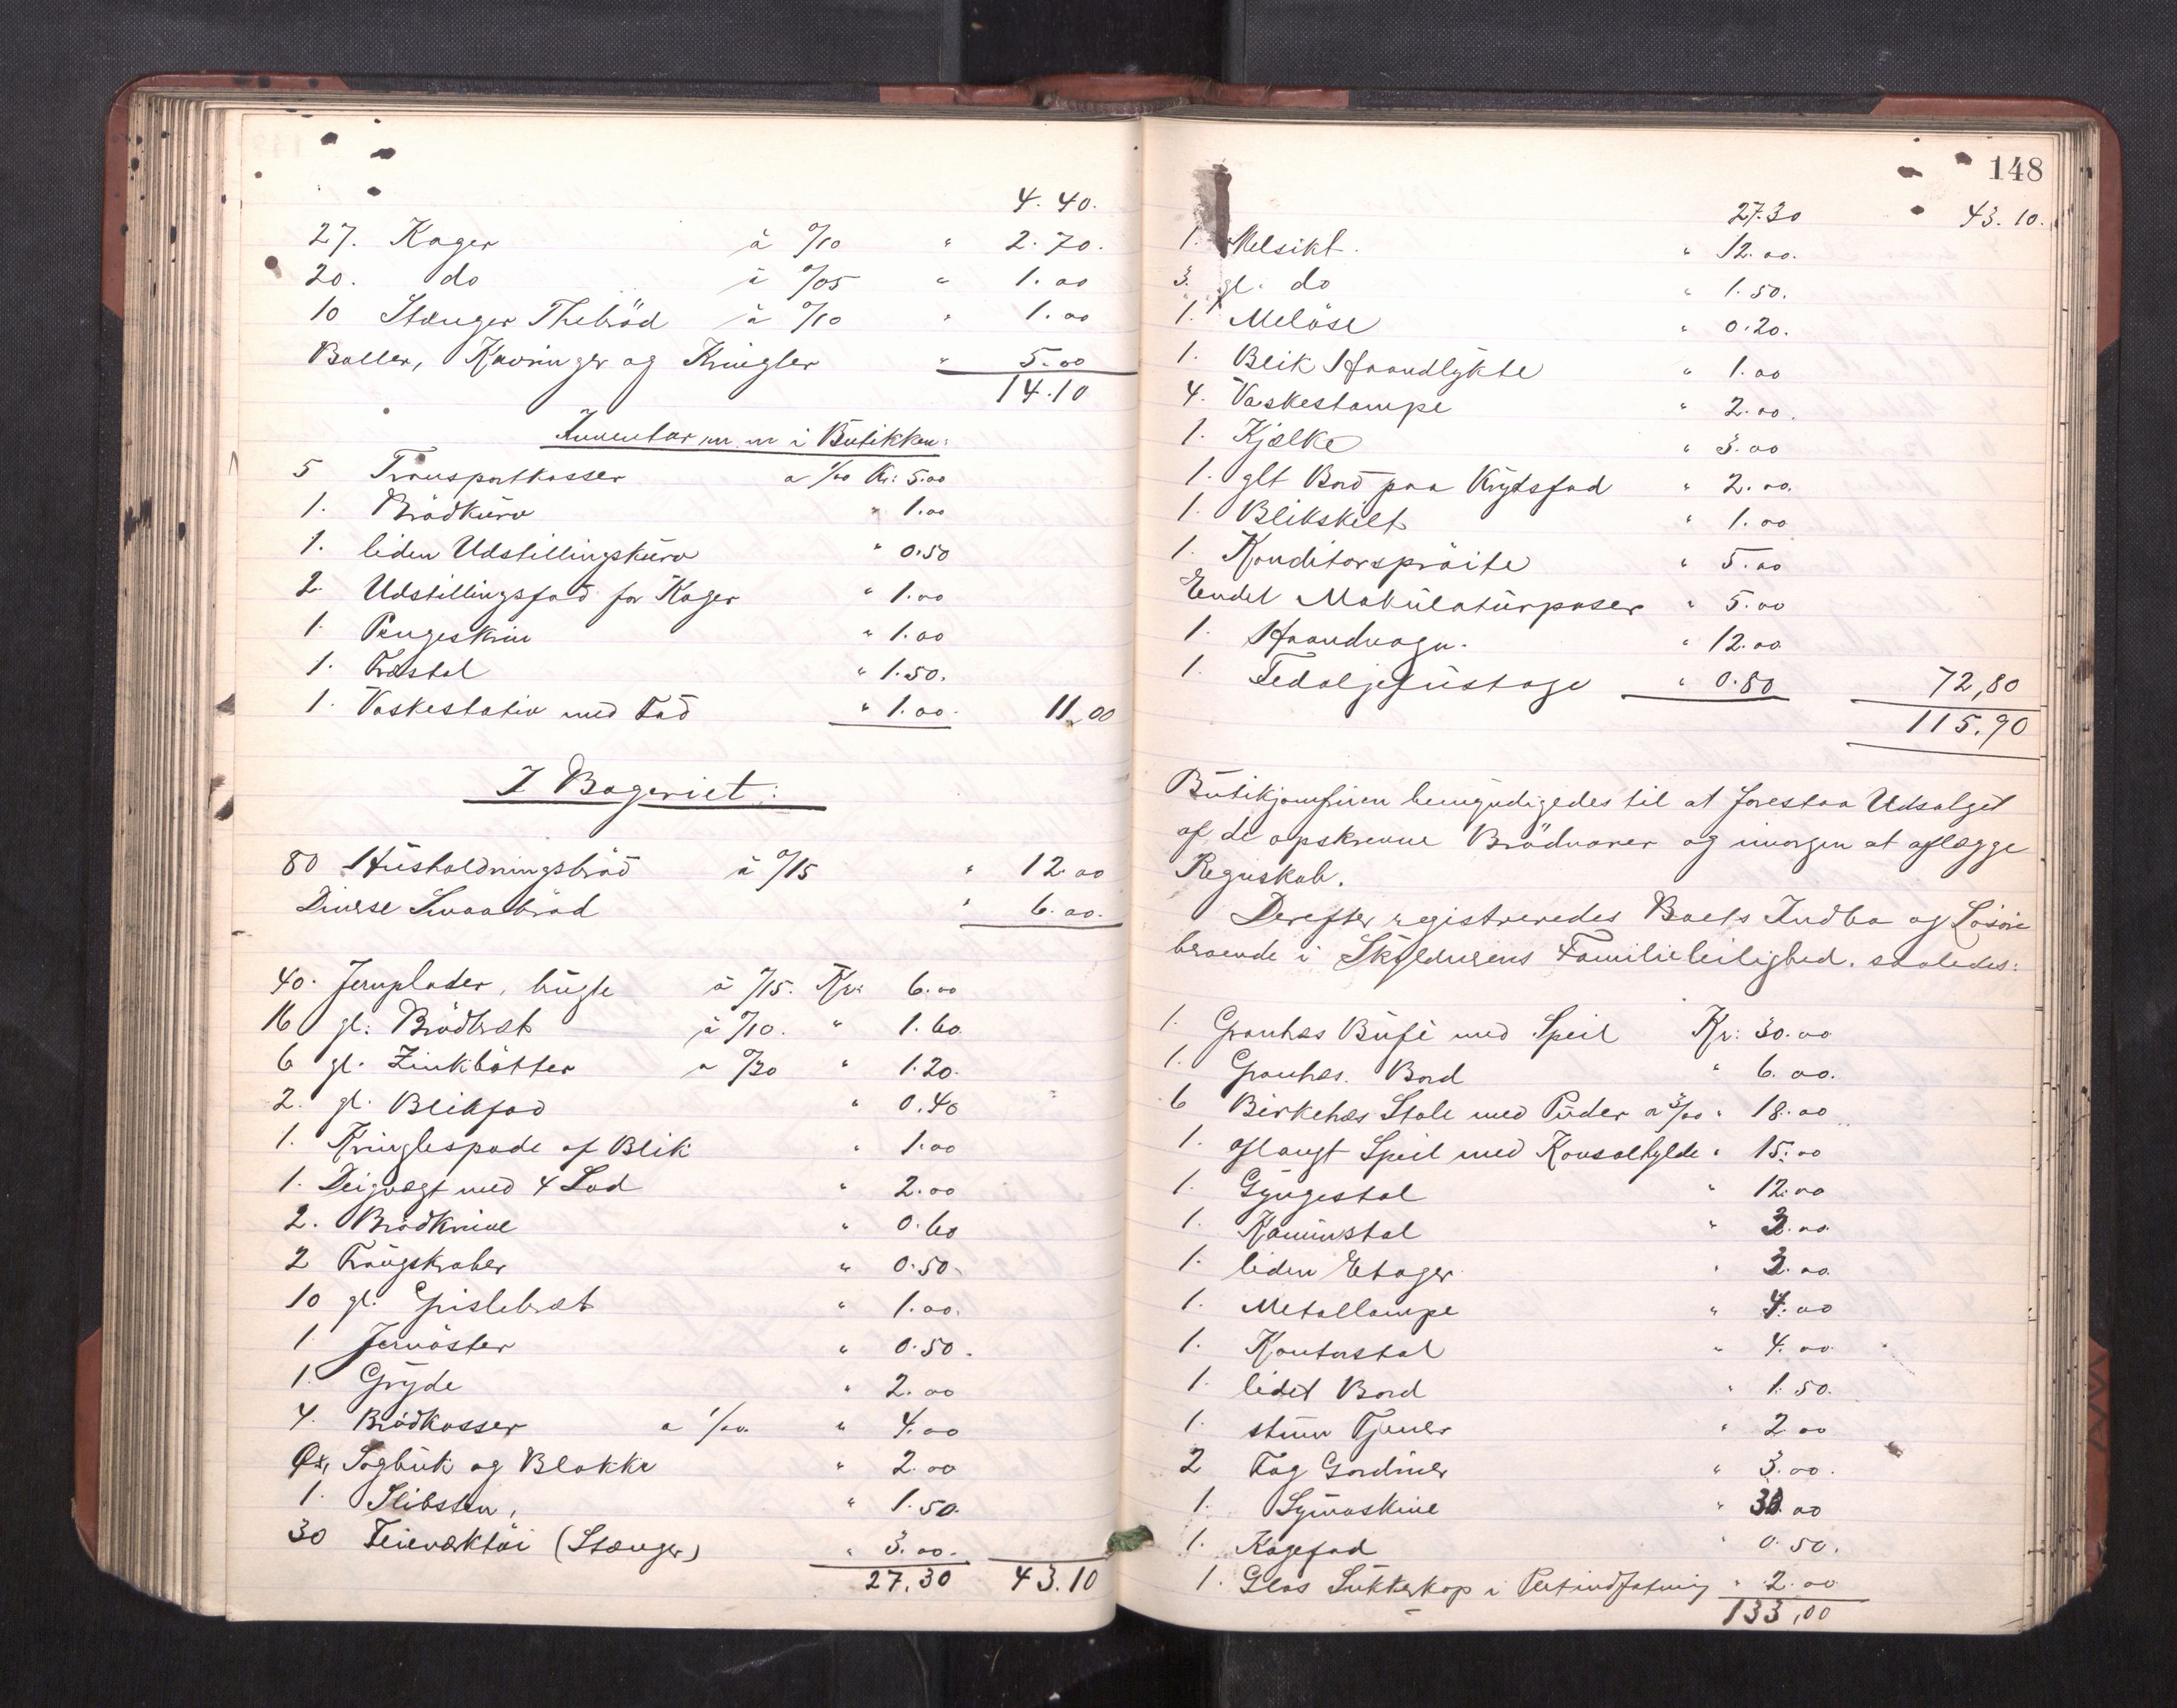 4.40.
27. Kager à 0/10 " 2.70.
20. do à 0/05 " 1.00
10 Stænger Thebröd à 0/10 " 1.00
Boller, Kavringer og Kringler " 5.00
14.10
Inventar m. m i Butikken:
5 Transportkasser a 1/00 Kr: 5.00
1. Brödkurv " 1.00
1. liden Udstillingskurv " 0.50
2 Udstillingsfad for Kager " 1.00
1. Pengeskrin " 1.00
1. Træstol " 1.50.
1. Vaskestativ med Fad " 1.00. 11,00
I Bageriet:
80 Husholdningsbröd à 0/15 " 12.00
Diverse Smaabröd " 6.00.
40. Jernplader, brugte à 0/15. Kr: 6.00
16 gl. Brödbræt à 0/10. " 1.60
6 gl. Zinkbötter a 0/20 " 1.20.
2. gl. Blikfad " 0.40
1. Kringlespade af Blik " 1.00
1. Deigvægt med 4 Lod " 2.00
2. Brödknive " 0.60
2 Traugskraber " 0.50
10 gl. Gislebræt " 1.00.
1 Jernöster " 0.50.
1. Gryde " 2.00
4. Brödkasser a 1/00. " 4.00
Øx, Sagbuk og Blakke " 2.00
1. Slibsten, " 1.50.
30 Feieværktöi (Stænger) " 3.00.
27,30 43.10
148
27.30 43.10.
1. Melsikt. " 12.00.
3. gl. do " 1.50.
1. Melöse " 0.20.
1. Blik Haandlykte " 1.00
4. Vaskestampe " 2.00.
1. Kjælke " 3.00
1. glt Bord paa Krydsfod " 2.00.
1. Blikskilt " 1.00
1. Konditorspröite " 5.00
Endel Makulaturposer " 5.00
1. Haandvogn. " 12.00
1. Fedaljefustage " 0.80 72,80
115.90
Butikjomfruen bemyndigedes til at forestaa Udsalget
af de opskrevne Brödvarer og imorgen at aflægge
Regnskab.
Derefter registreredes Boets Indbo og Lösöre
beroende i Skyldnerens Familieleilighed. saaledes:
1. Granhæs Bufè med Speil Kr: 30.00
1. Granhæs. Bord " 6.00.
6 Birkehæs Stole med Puder a 3/00 " 18.00
1. aflangt Speil med Konsolhylde " 15.00
1. Gyngestol " 12.00
1. Kaminstol " 3.00
1. liden Etager " 3.00
1. Metallampe " 4.00
1. Kontorstol " 4.00
1. lidet Bord " 1.50.
1. stum Tjener " 2.00
2 Fag Gardiner " 3.00.
1. Symaskine " 30.00
1. Kagefad " 0.50.
1. Glas Sukkerkop i Pletindfatning " 2.00
133,00